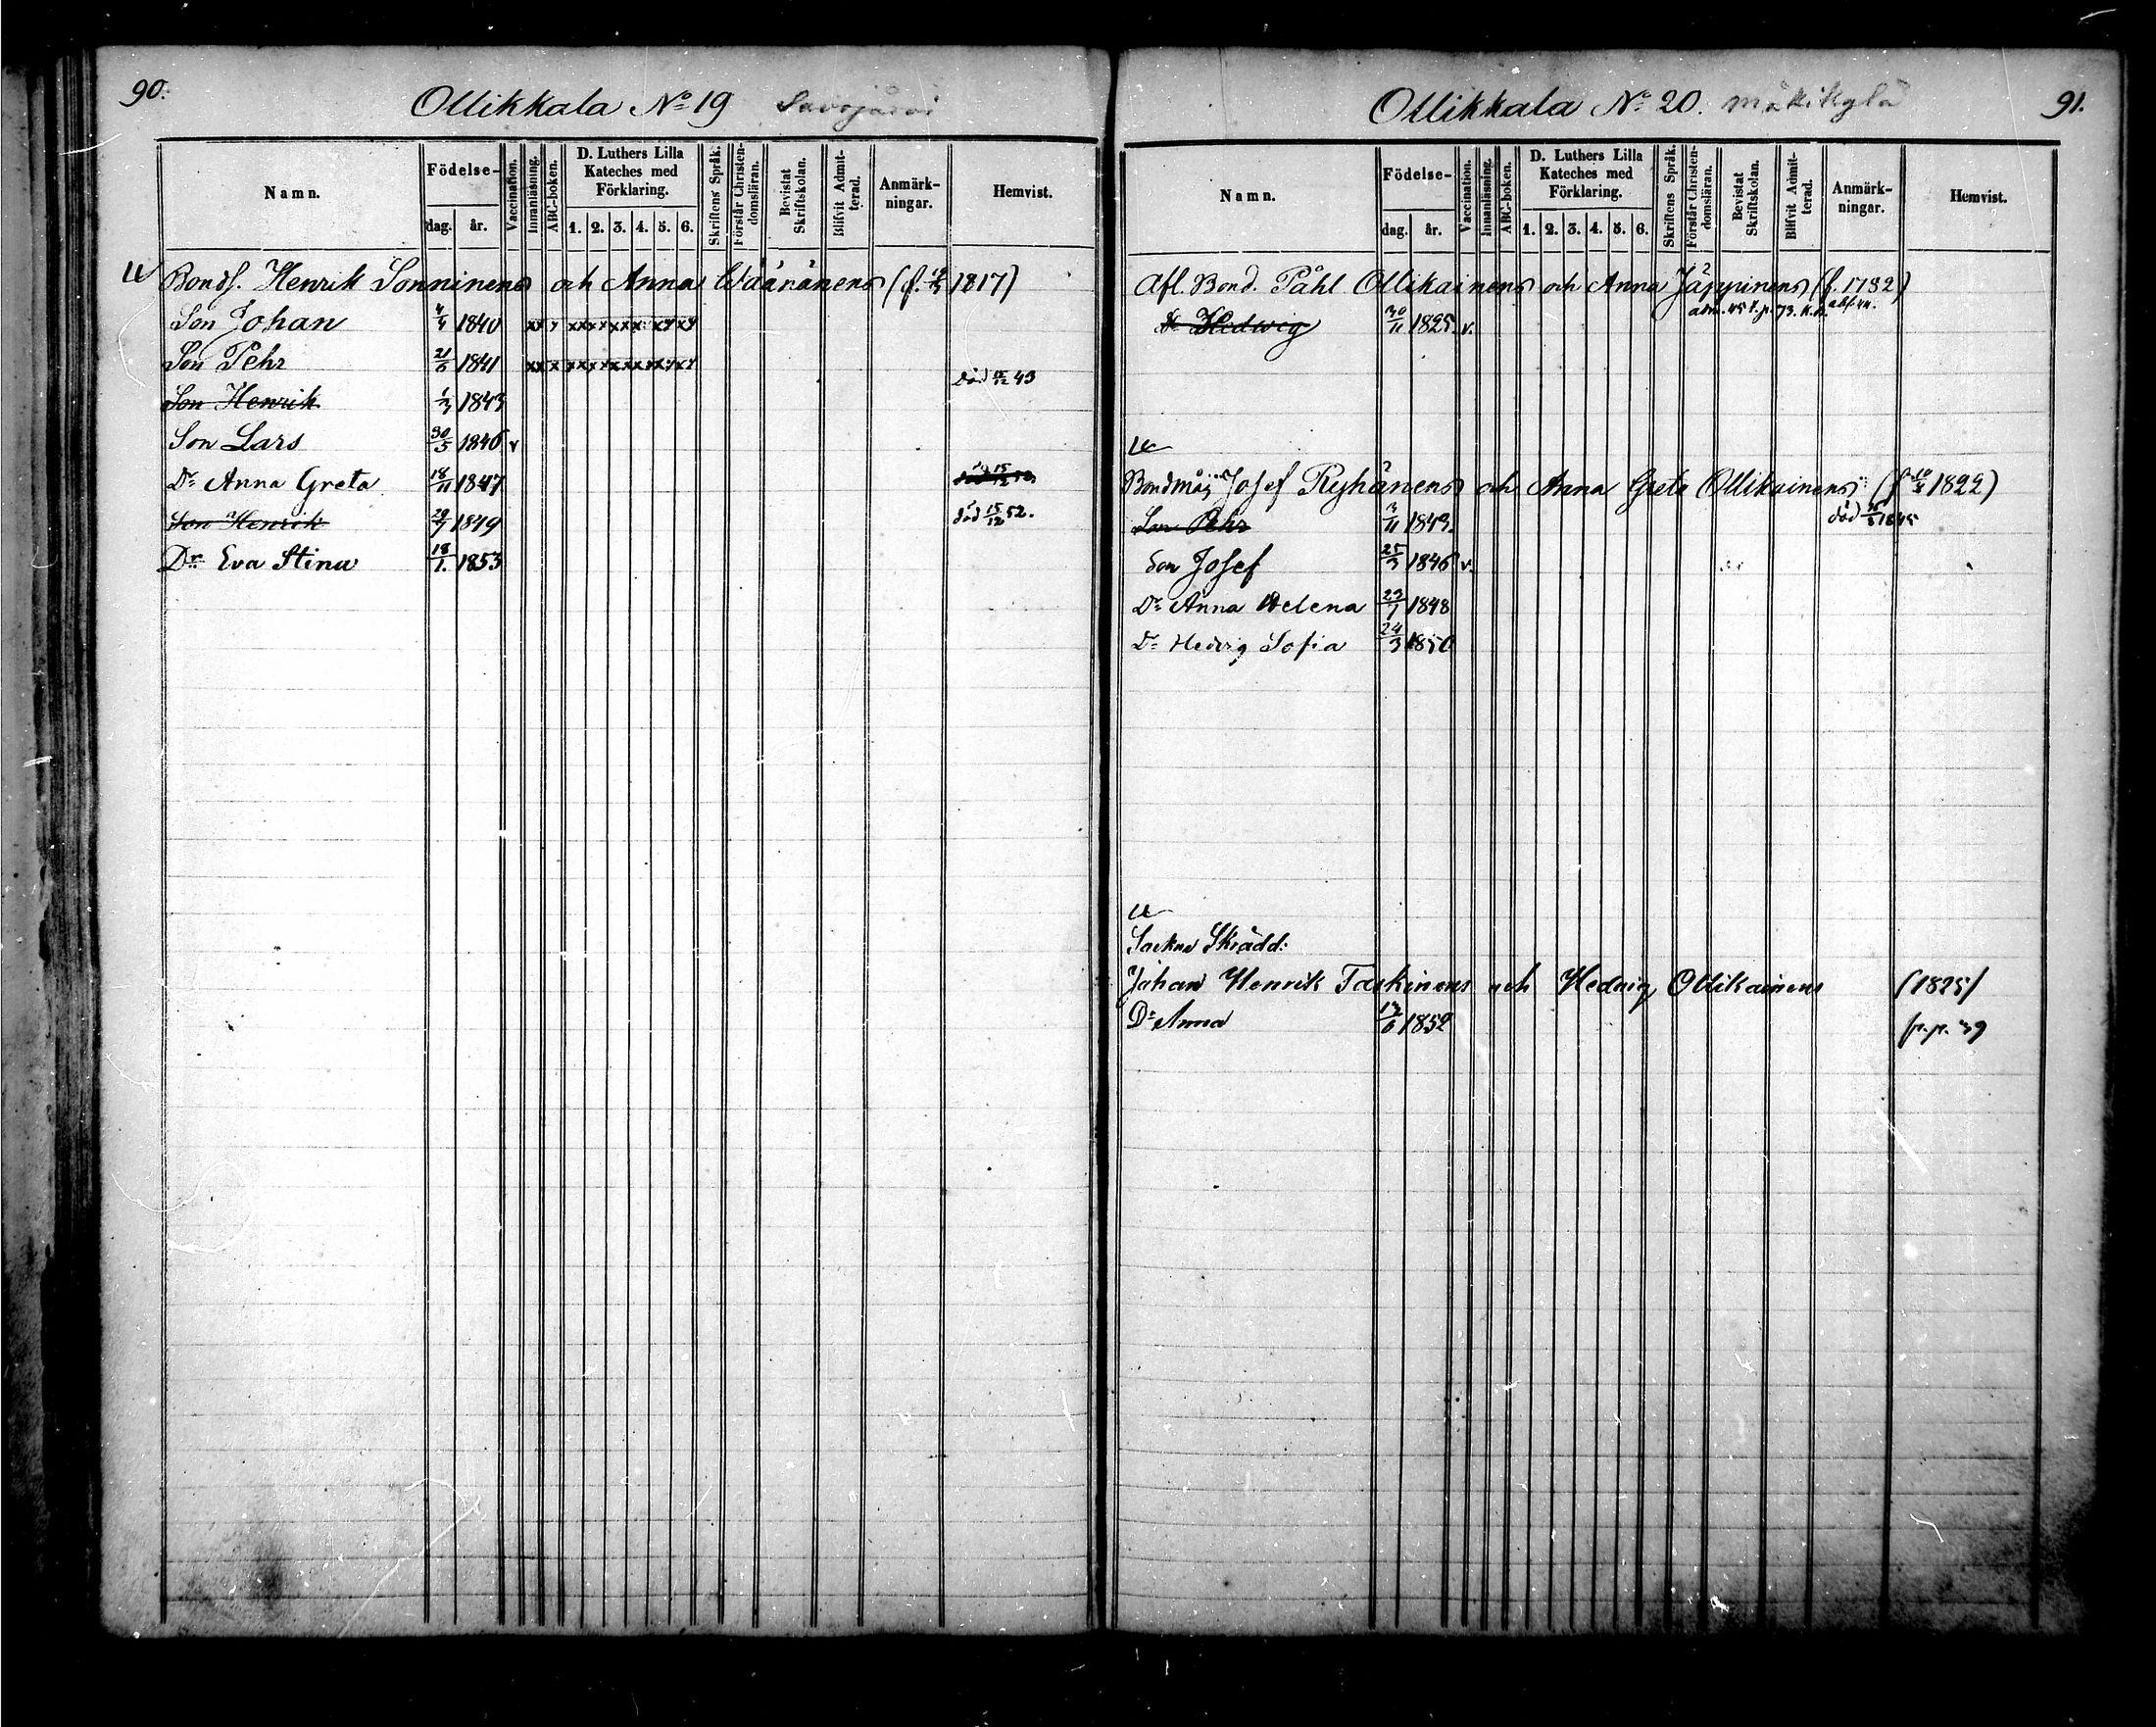 90.
Ollikkala No 19 Savojärvi
Namn. Födelse- dag. år. Vaccination. Innanläsning. ABC-boken. D. Luthers Lilla Kateches med Förklaring. 1. 2. 3. 4. 5. 6. Skriftens Språk. Förstår Christen-domsläran. Bevistat Skriftskolan. Blifvit Admit-terad. Anmärk-ningar. Hemvist.
Bonds. Henrik Sonninens och Anna Wäänänens (f. 1817)
Son Johan 4/4 1840 xx x xx xx xx x xx xx
Son Pehr 21/6 1841 xx x xx xx xx xx xx xx
Son Henrik 1/3 1843 död 43
Son Lars 30/5 1846 v
Dr Anna Greta 18/11 1847
Son Henrik 29/7 1849 död 15/12 52.
Dr Eva Stina 18/1. 1853
91.
Ollikkala No 20. Mäkikylä
Namn. Födelse- dag. år. Vaccination. Innanläsning. ABC-boken. D. Luthers Lilla Kateches med Förklaring. 1. 2. 3. 4. 5. 6. Skriftens Språk. Förstår Christen-domsläran. Bevistat Skriftskolan. Blifvit Admit-terad. Anmärk-ningar. Hemvist.
Afl. Bond. Påhl Ollikainens och Anna Jäppinens (f. 1782)
Dr Hedwig 30/11 1825. v. adm. 45 p. 73. K.B.
Bondmåg Josef Ryhänens och Anna Greta Ollikainens (f. 1822)
Son Pehr 3/11 1843. död 1845
Son Josef 25/3 1846 v.
Dr Anna Helena 23/1 1848
Dr Hedvig Sofia 24/3 1850
Sockne Skrädd:
Johan Henrik Taskinens och Hedvig Ollikainens (1825)
Dr Anna 12/6 1852 p. 39